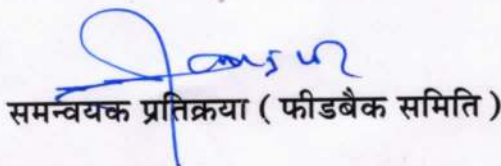 समन्वयक प्रतिक्रया ( फीडबैक समिति )